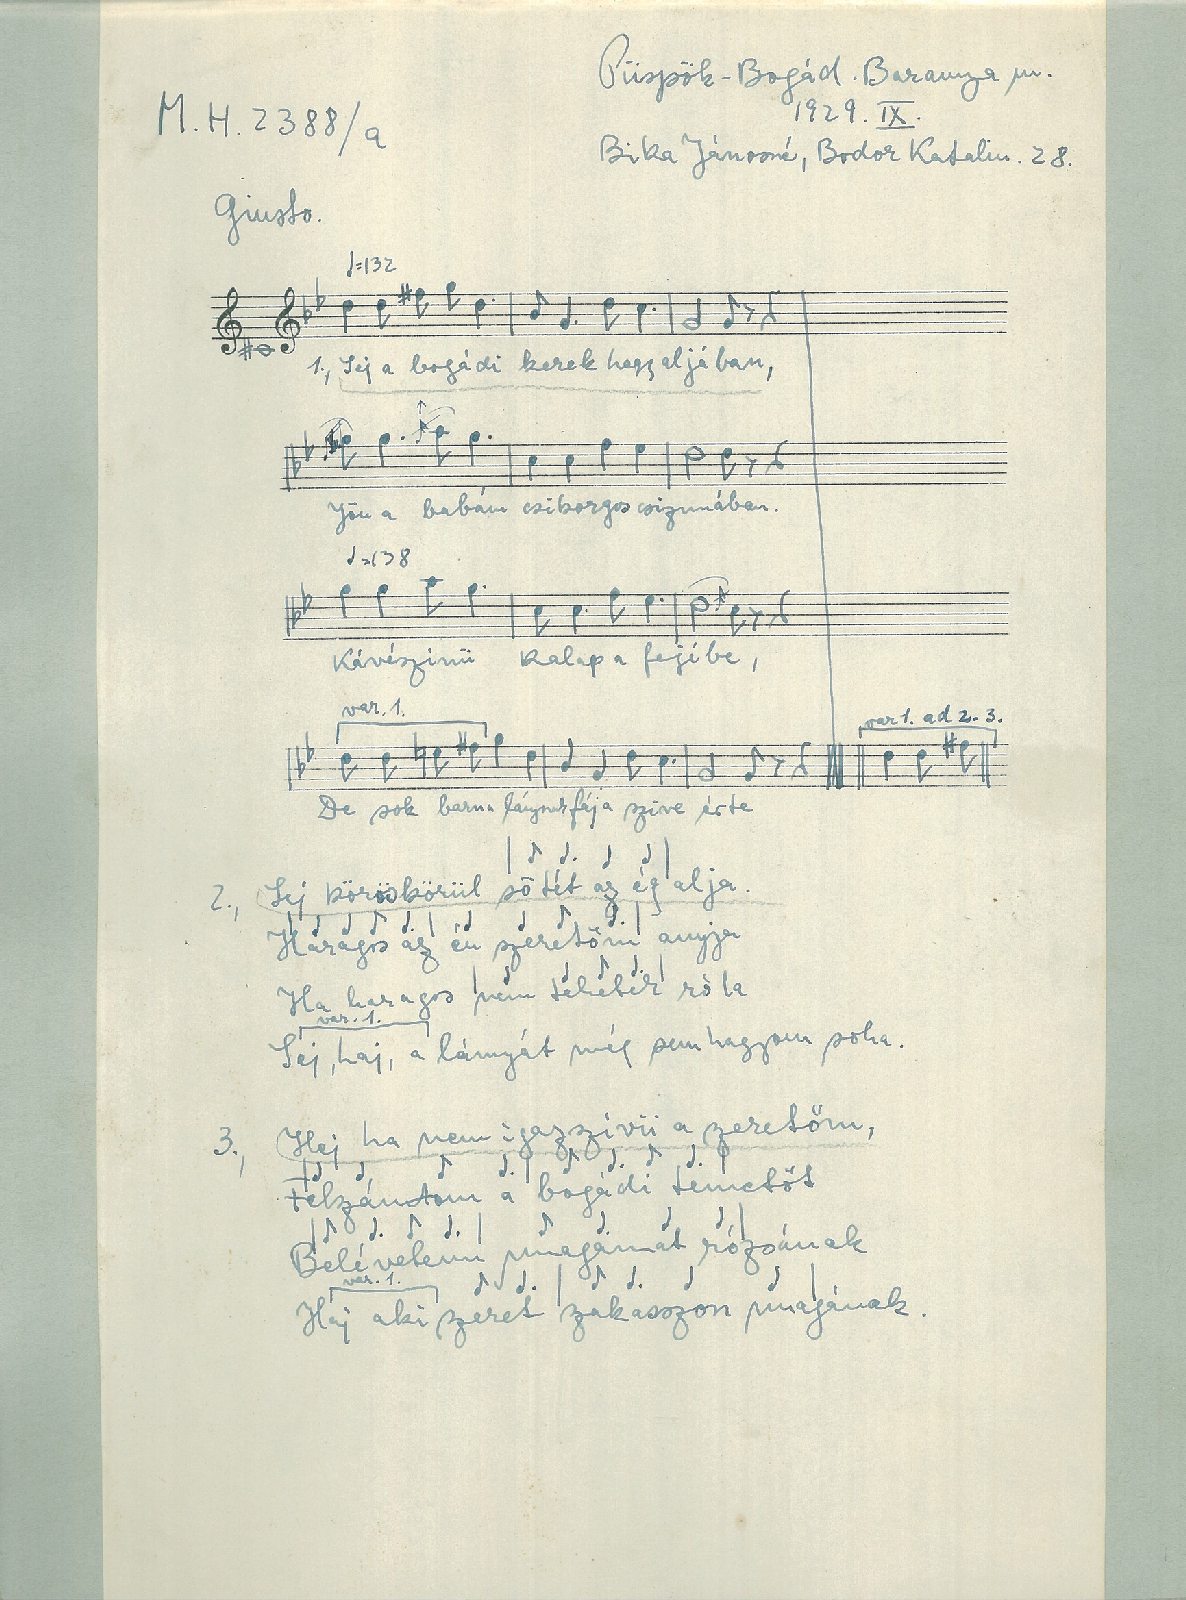 Püspök-Bogád. Baranya m.
M.H. 2388/a
1929. IX.
Bika Jánosné, Bodor Katalin. 28.
Giusto.
♩=132
1., Sej a bogádi kerek hegyaljában,
Jön a babám csikorgos csizmában.
♩=138
Kávészinü kalap a fejibe,
var. 1.
var 1. ad 2. 3.
De sok barna lánynak fája szive érte
2., Sej köröskörül sötét az ég alja.
Haragos az én szeretőm anyja
Ha haragos nem tehetek róla
var. 1.
Sej, haj, a lányát még sem hagyom soha.
3., Hej ha nem igazszivü a szeretőm,
Felszántom a bogádi temetőt
Belévetem magamat rózsának
var. 1.
Haj aki szeret szakasszon magának.